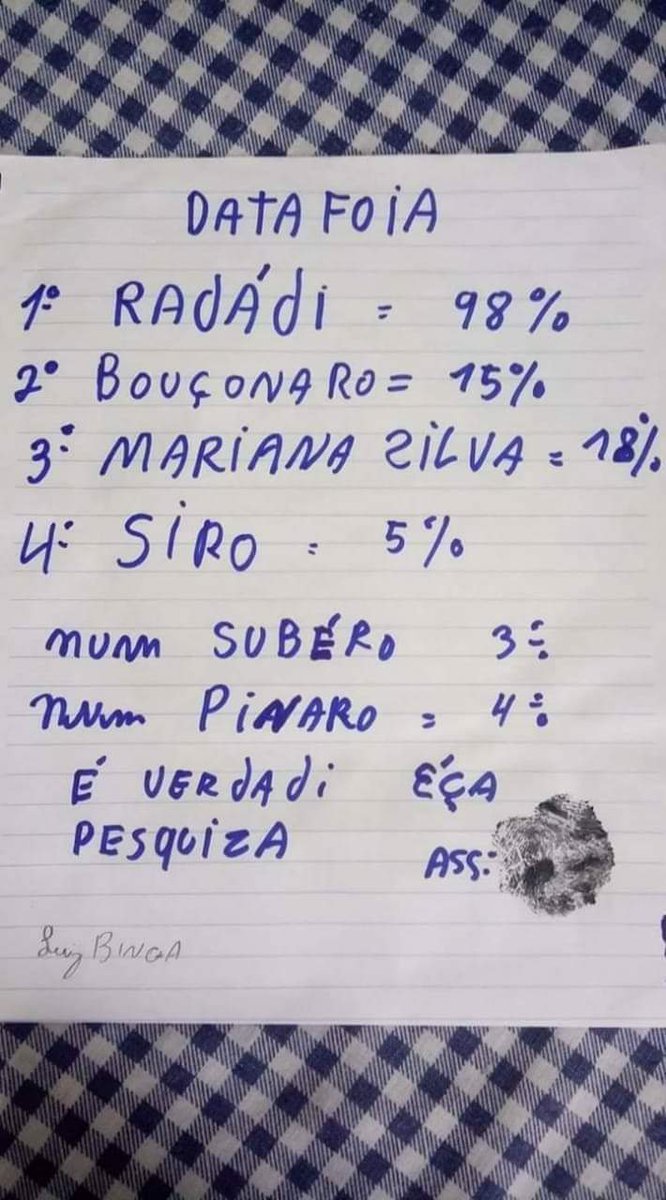 DATA FOIA
1º RADÁDI = 98%
2º BOUÇONARO = 15%
3º MARIANA ZILVA = 18%
4º SIRO = 5%
NUM SUBÉRO 3%
NUM PINARO = 4%
É VERDADI ÉÇA
PESQUIZA ASS:
Luiz BINGA